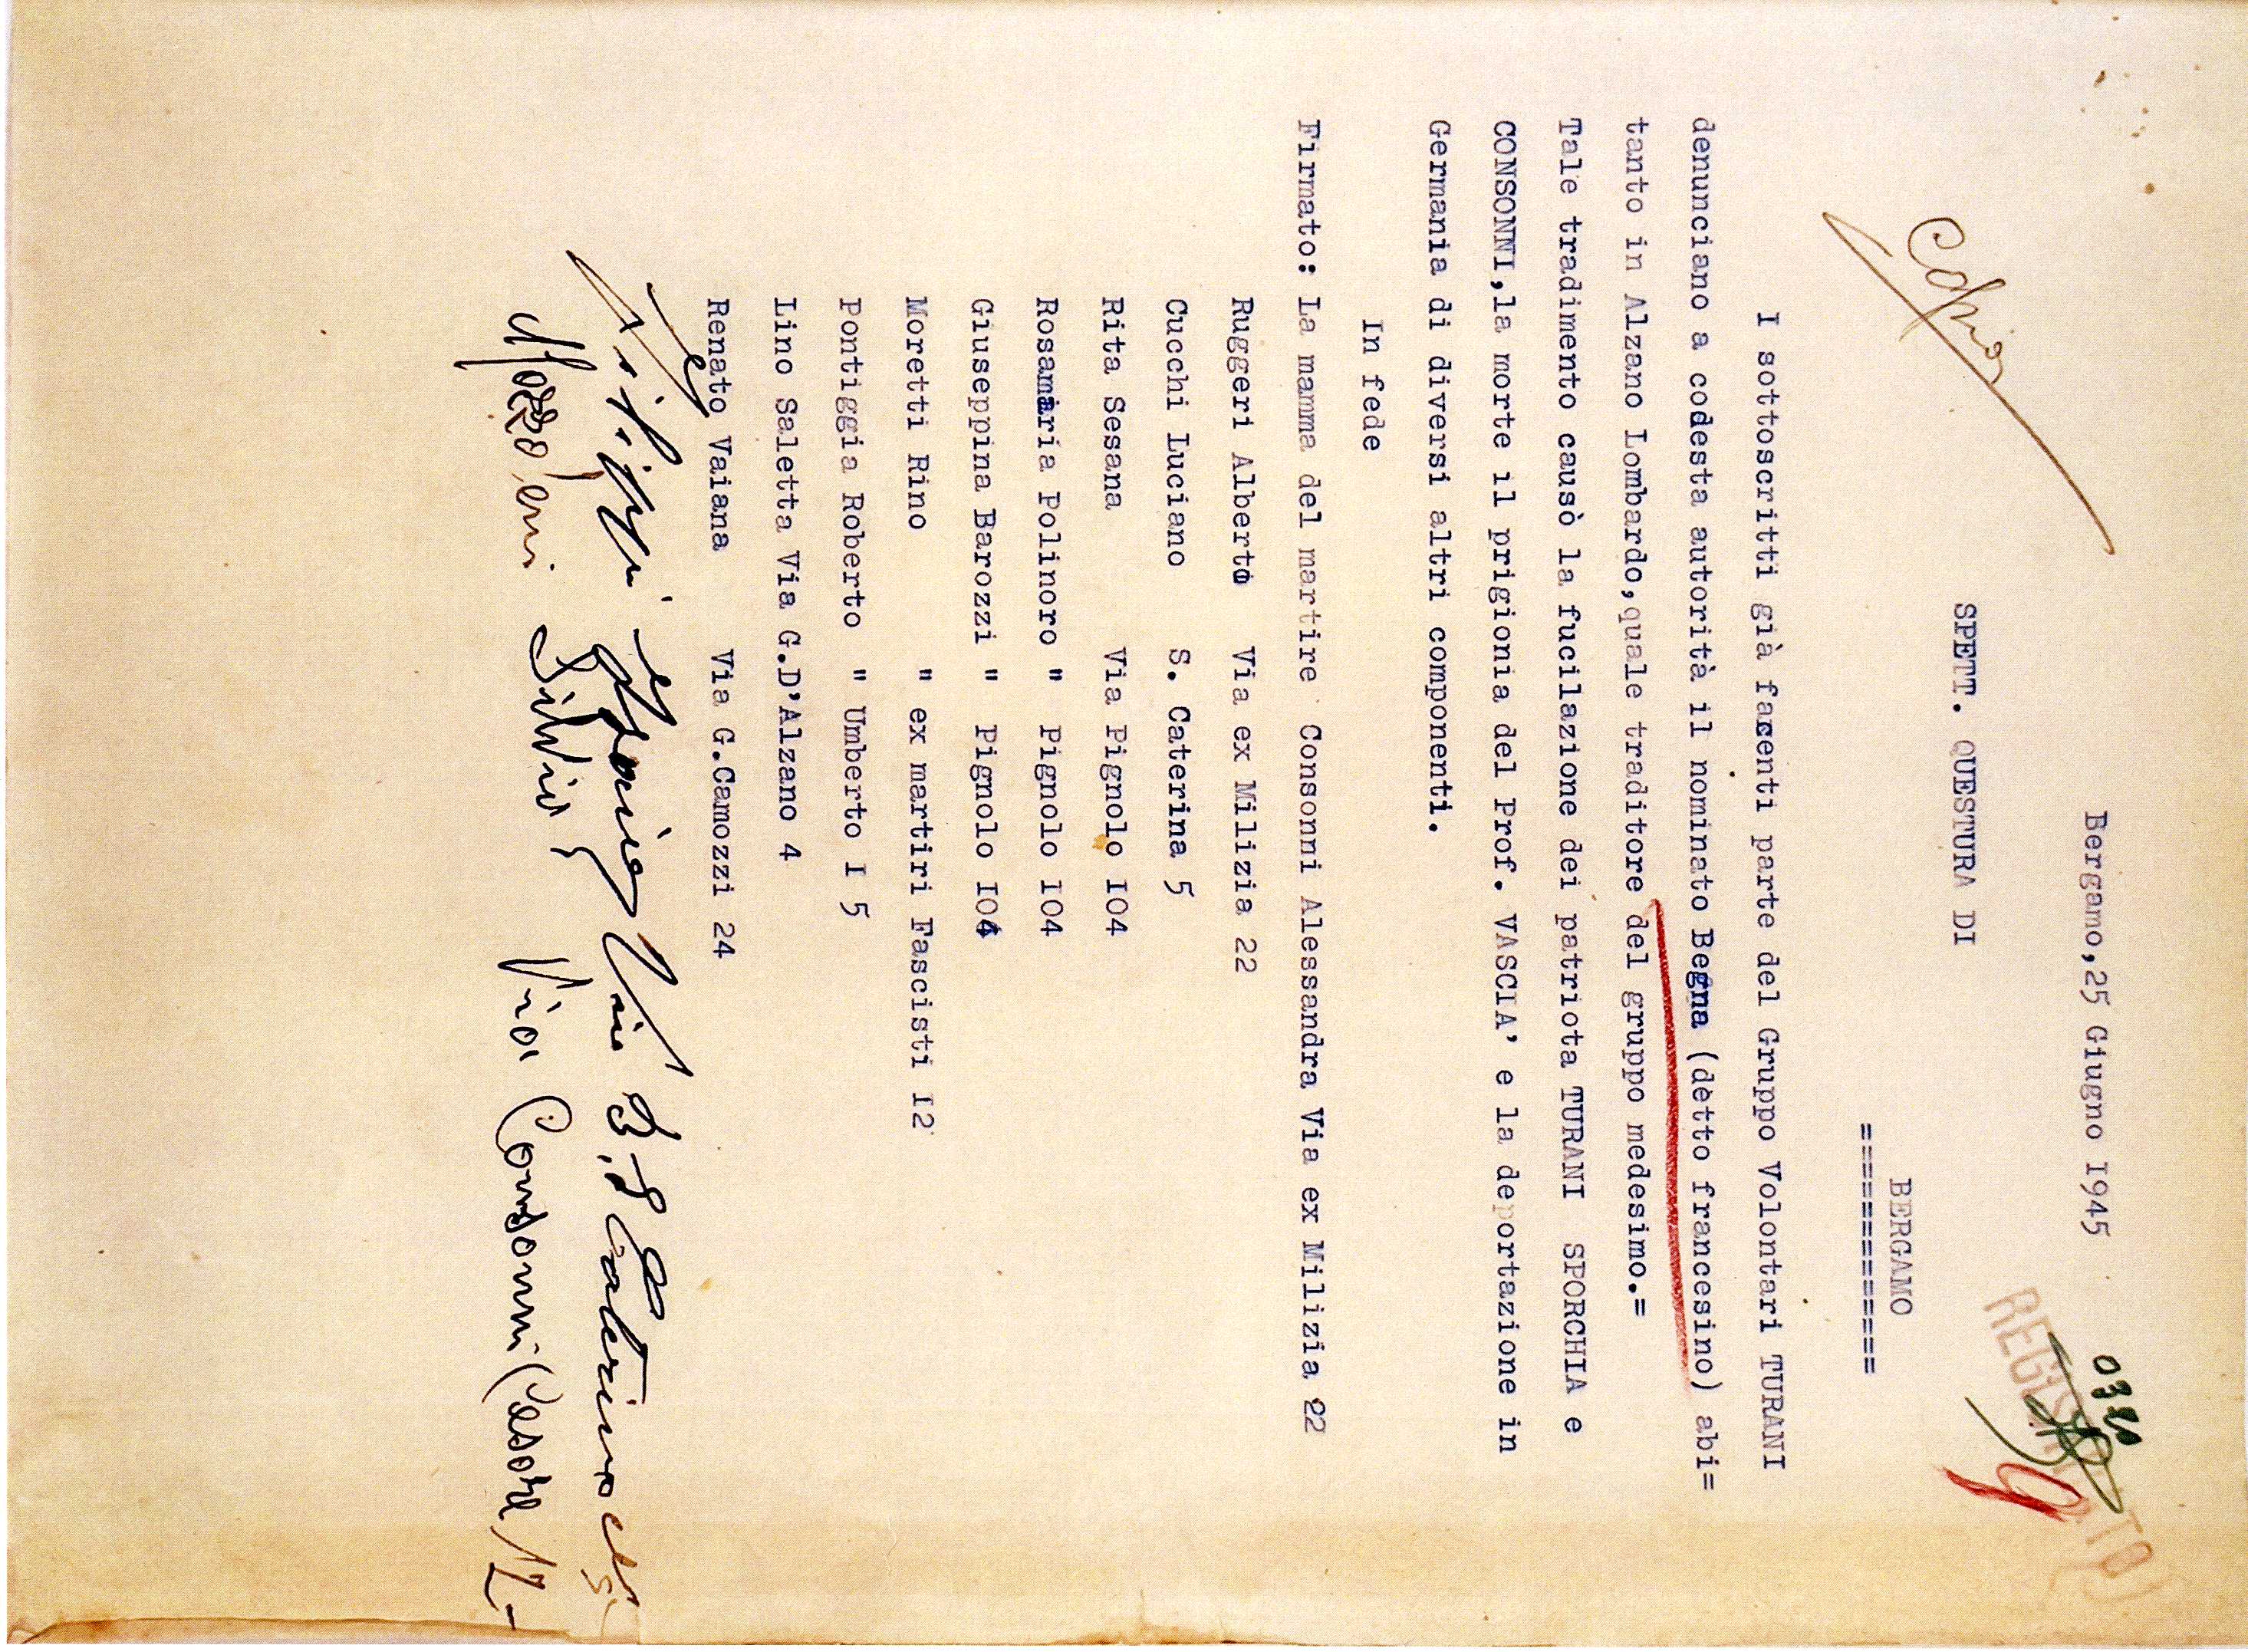 Copia
Bergamo,25 Giugno I945
REGISTRATO
SPETT. QUESTURA DI
BERGAMO
=============
I sottoscritti già facenti parte del Gruppo Volontari TURANI
denunciano a codesta autorità il nominato Begna (detto francesino) abi=
tanto in Alzano Lombardo,quale traditore del gruppo medesimo.=
Tale tradimento causò la fucilazione dei patriota TURANI SPORCHIA e
CONSONNI,la morte il prigionia del Prof. VASCIA' e la deportazione in
Germania di diversi altri componenti.
In fede
Firmato: La mamma del martire Consonni Alessandra Via ex Milizia 22
Ruggeri Alberto Via ex Milizia 22
Cucchi Luciano S. Caterina 5
Rita Sesana Via Pignolo I04
Rosamaria Polinoro " Pignolo I04
Giuseppina Barozzi " Pignolo I04
Moretti Rino " ex martiri Fascisti I2
Pontiggia Roberto " Umberto I 5
Lino Saletta Via G.D'Alzano 4
Renato Vaiana Via G.Camozzi 24
Via S. Caterina
Silvio Via Consonni Cesare 12